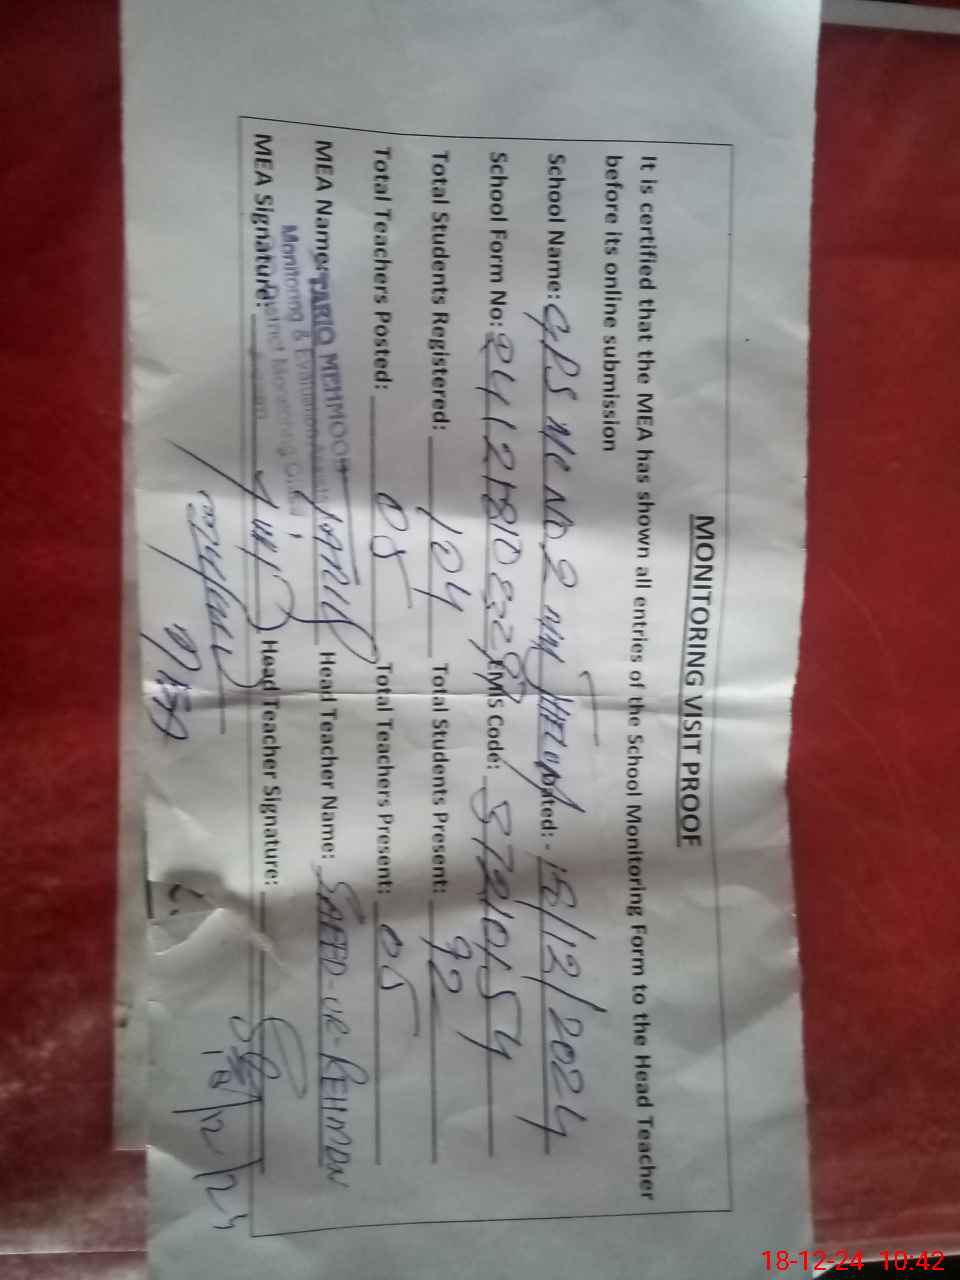 MONITORING VISIT PROOF
It is certified that the MEA has shown all entries of the School Monitoring Form to the Head Teacher
before its online submission
School Name: GPS MC NO.2 Dated: - 18/12/2024
School Form No: EMIS Code: 37210154
Total Students Registered: 124 Total Students Present: 92
Total Teachers Posted: 05 Total Teachers Present: 05
MEA Name: TARIQ MEHMOOD TARIQ Head Teacher Name: SAEED-UR-REHMAN
Monitoring & Evaluation Assistant
District Monitoring Office
MEA Signature: Head Teacher Signature:
MEA
18/12/24
18-12-24 10:42